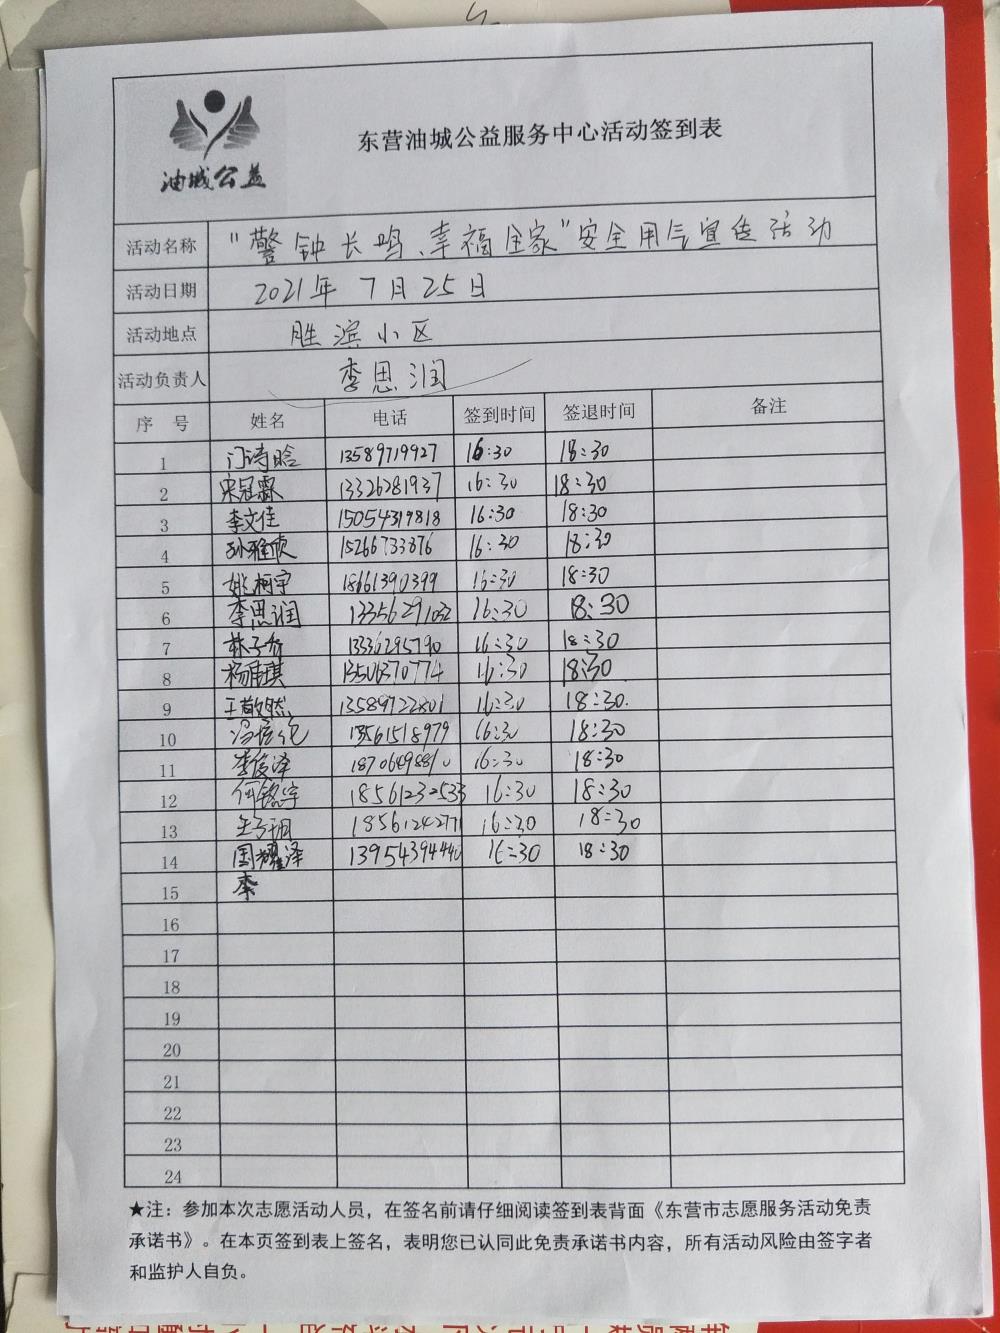 油城公益
东营油城公益服务中心活动签到表
活动名称 "警钟长鸣、幸福全家"安全用气宣传活动
活动日期 2021年7月25日
活动地点 胜滨小区
活动负责人 李思润
序 号 姓名 电话 签到时间 签退时间 备注
1 门诗晗 13589719927 16:30 18:30
2 宋冠霖 13326281937 16:30 18:30
3 李文佳 15054319818 16:30 18:30
4 孙雅欣 15266733876 16:30 18:30
5 姚柯宇 18661390399 16:30 18:30
6 李思润 13356291032 16:30 18:30
7 林子乔 13336295790 16:30 18:30
8 13506370774 16:30 18:30
9 王歆然 13589722801 16:30 18:30
10 13561518979 16:30 18:30
11 李俊泽 16:30 18:30
12 何铭宇 18561232533 16:30 18:30
13 18561242771 16:30 18:30
14 国耀泽 13954394440 16:30 18:30
15 李
16
17
18
19
20
21
22
23
24
★注：参加本次志愿活动人员，在签名前请仔细阅读签到表背面《东营市志愿服务活动免责
承诺书》。在本页签到表上签名，表明您已认同此免责承诺书内容，所有活动风险由签字者
和监护人自负。